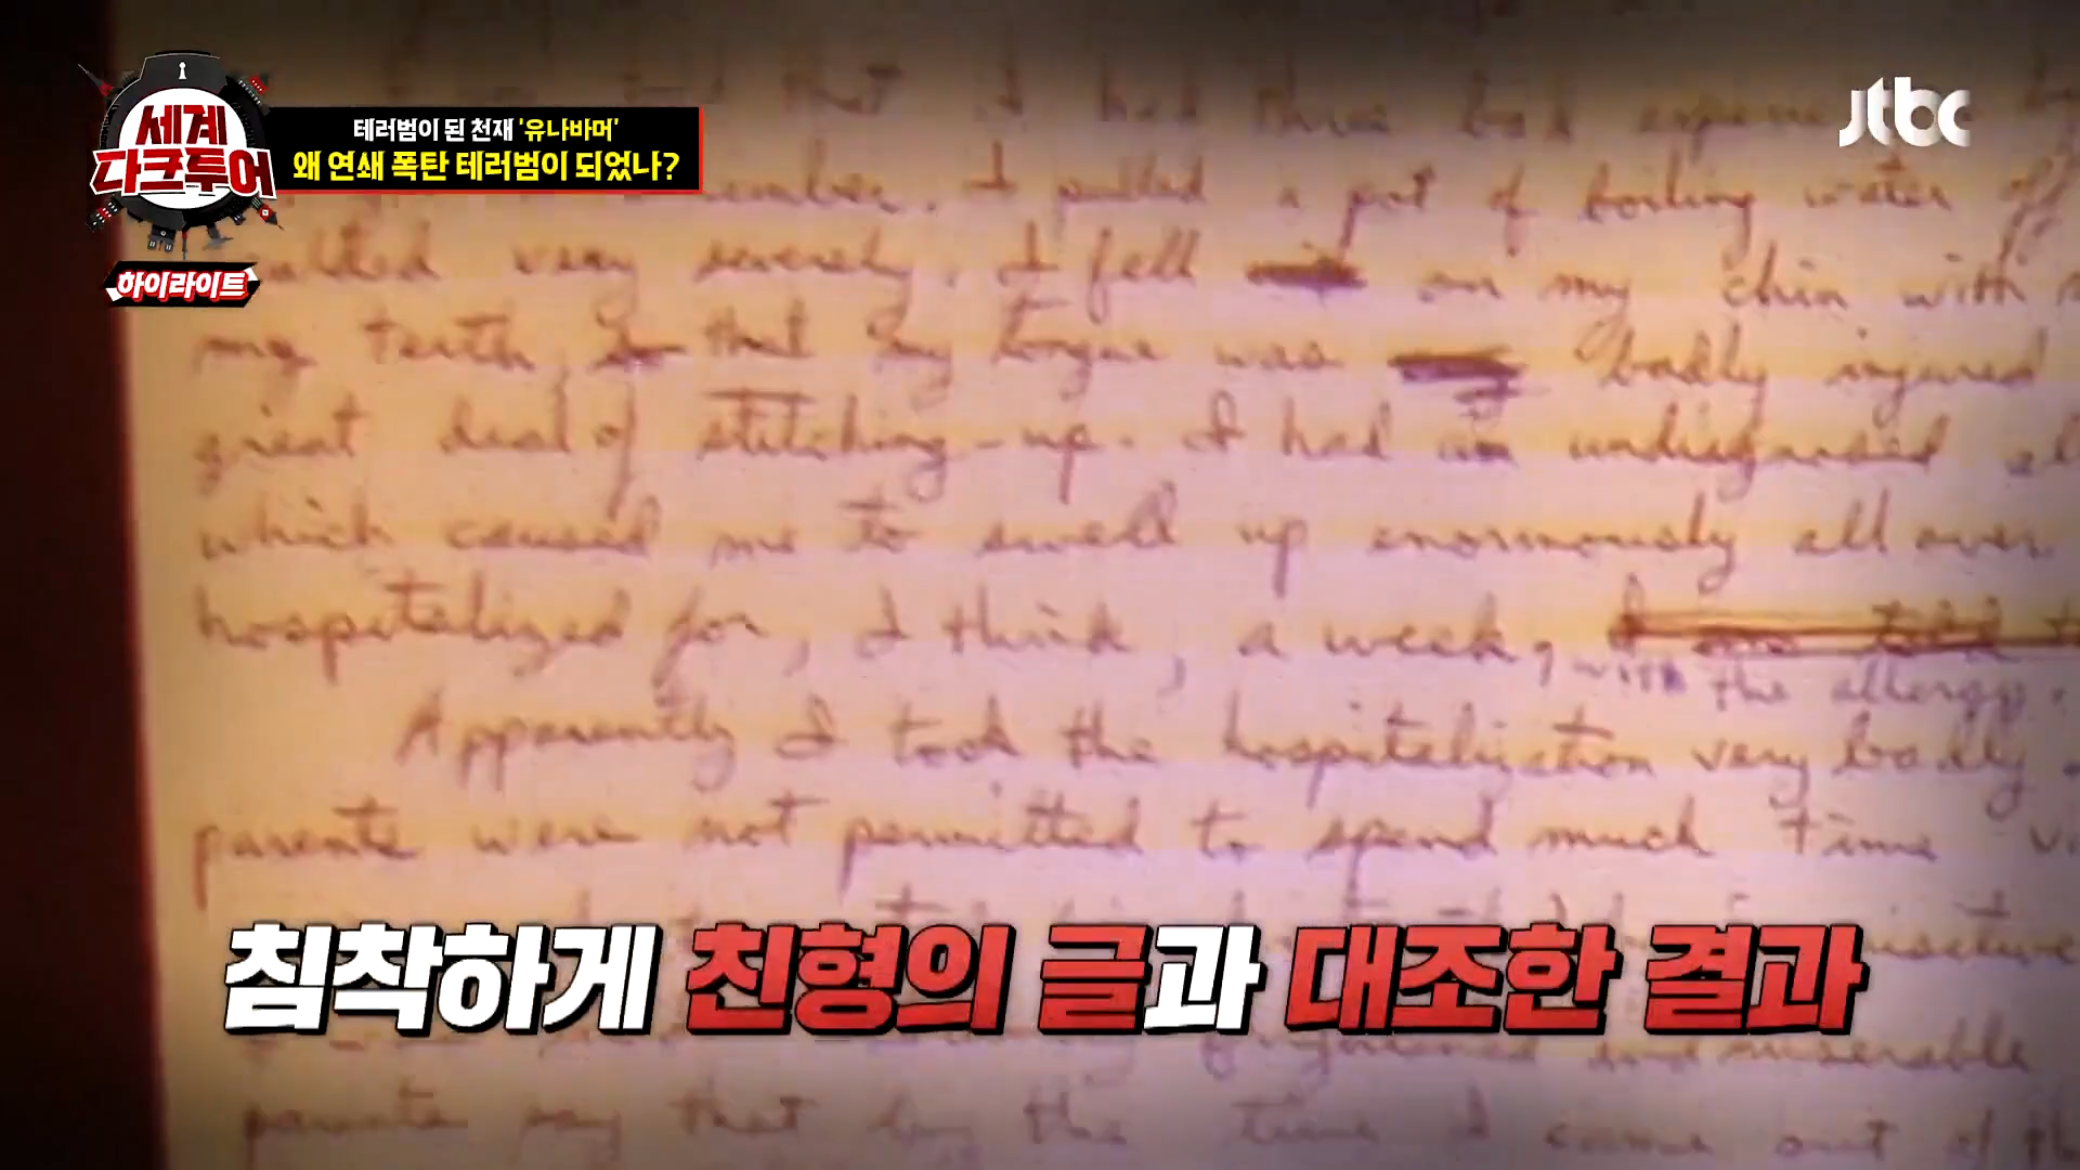 세계
다크투어
하이라이트
테러범이 된 천재 '유나바머'
왜 연쇄 폭탄 테러범이 되었나?
jtbc
that I had three bad
I pulled a pot of boiling water off
very severely. I fell on my chin with
my teeth, so that my tongue was badly injured
great deal of stitching-up. I had an undiagnosed
which caused me to swell up enormously all over
hospitalized for, I think, a week, I was told
with the allergy.
Apparently I took the hospitalization very badly
parents were not permitted to spend much time
침착하게 친형의 글과 대조한 결과
frightened and miserable
parents say that by the time I came out of